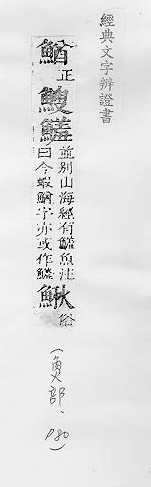 經典文字辨證書
鰌正鱃
並別山海經有鱃魚注
曰今蝦鰌字亦或作鱃
鰍俗
(魚部、P80)